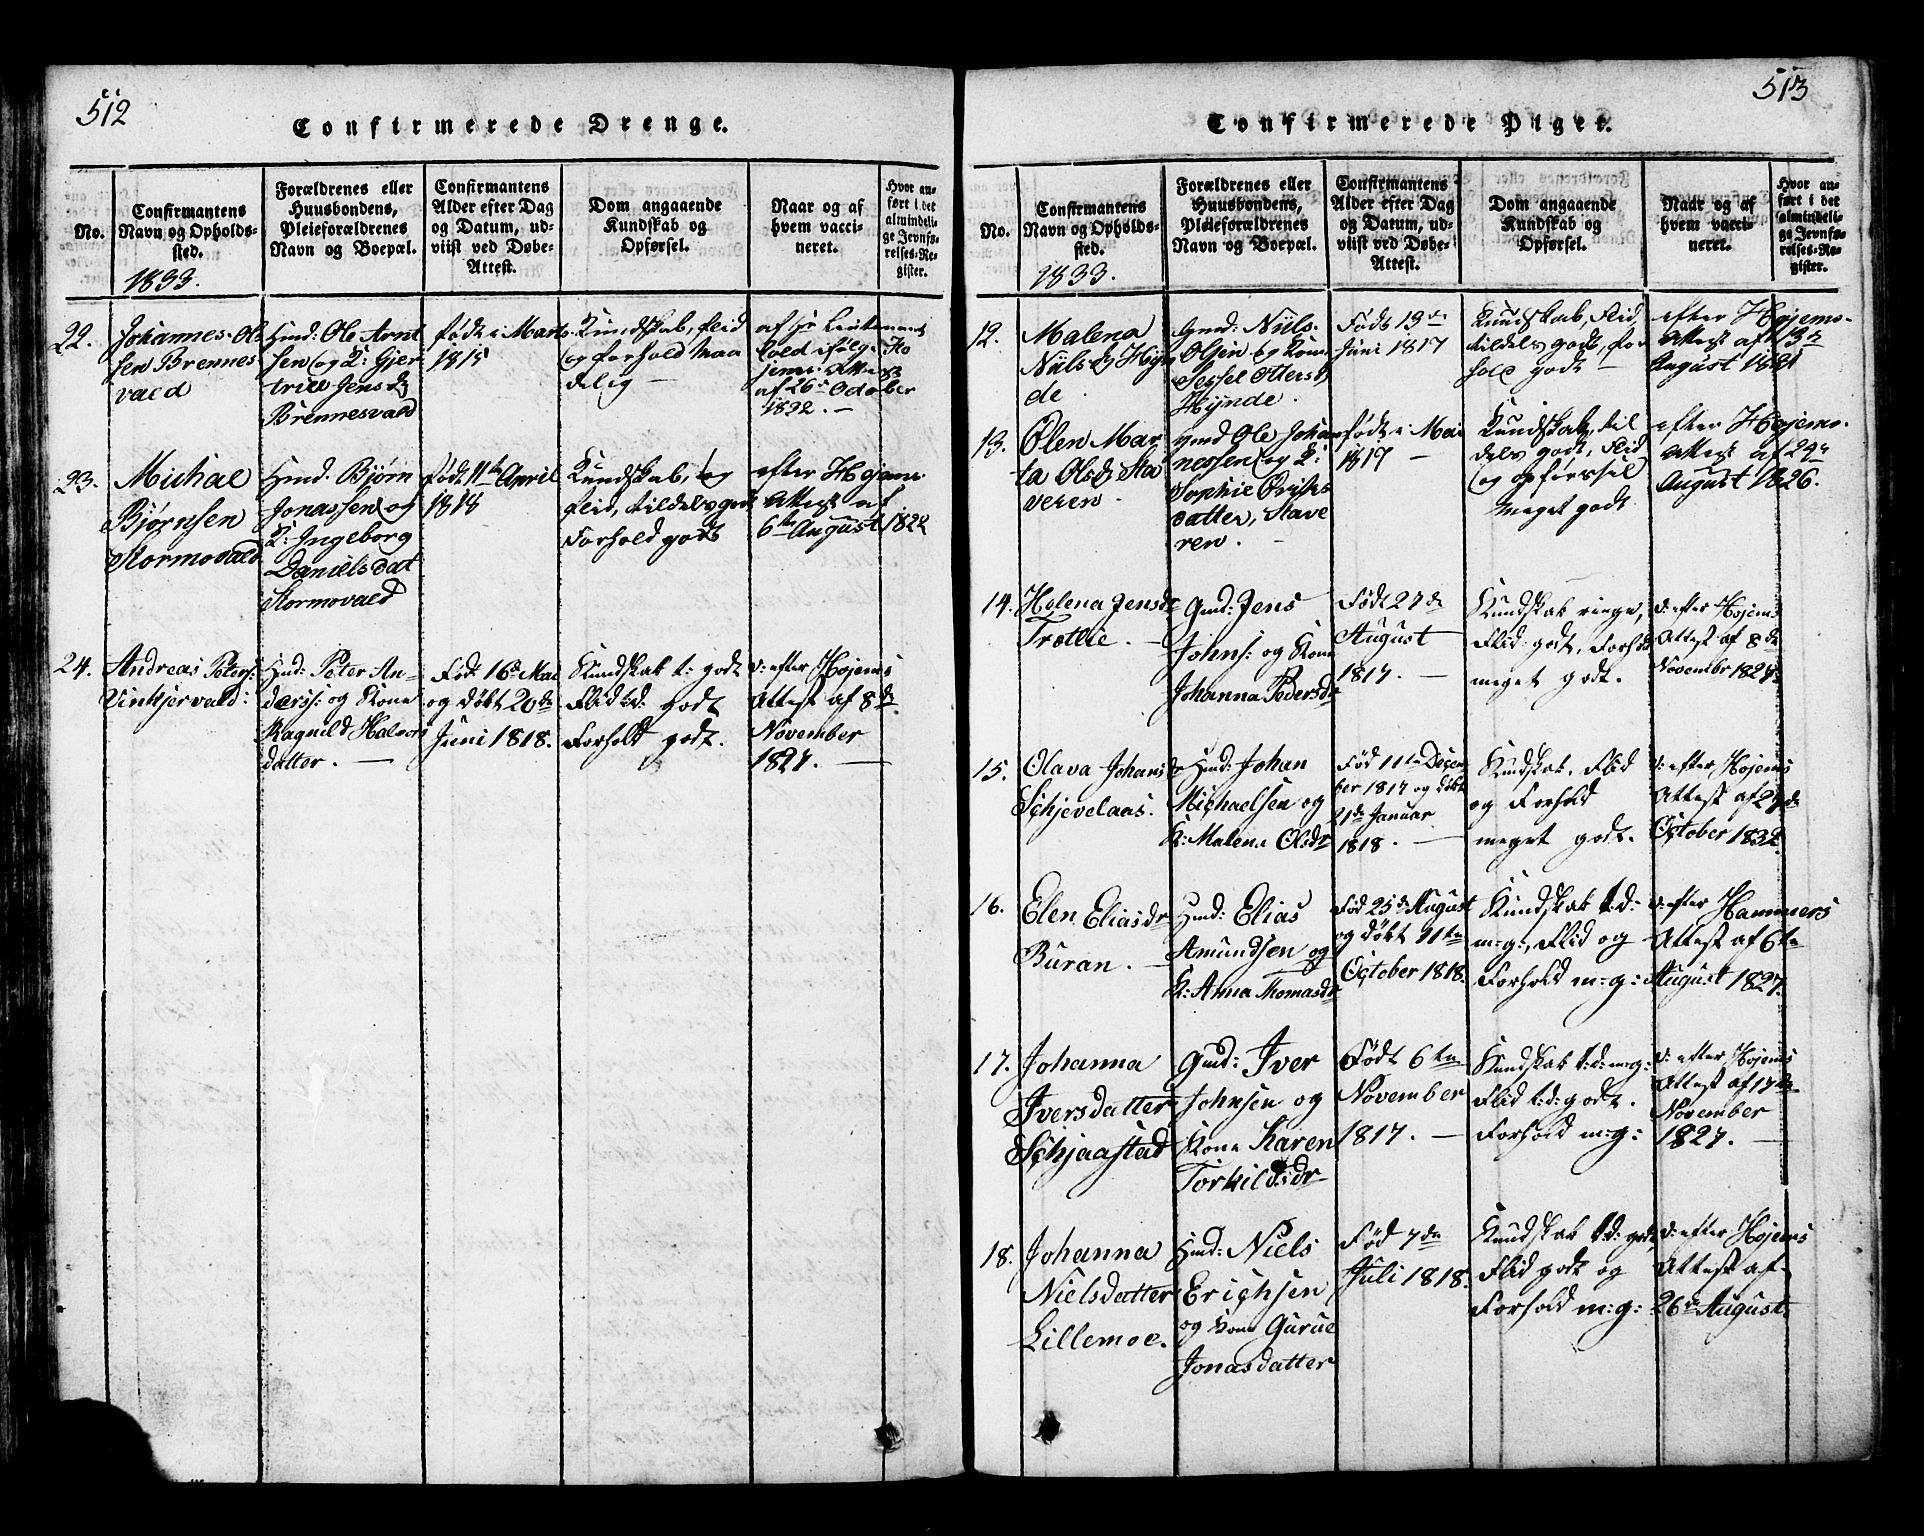 512
Confirmerede Drenge.
No.
Confirmantens
Navn og Opholds-
sted.
1833.
Forældrenes eller
Huusbondens,
Pleieforældrenes
Navn og Boepæl.
Confirmantens
Alder efter Dag
og Datum, ud-
viist ved Døbe-
Attest.
Dom angaaende
Kundskab og
Opførsel.
Naar og af
hvem vacci-
neret.
Hvor an-
ført i det
almindeli-
ge Jevnfø-
relses-Re-
gister.
22.
Johannes Ol
sen Brennes
vald
Hmd: Ole Arnt
sen og K: Gjer
true Jensd
Brennesvald
født i Marts
1815
Kundskab, flid
og forhold maa
delig —
af Hr Lieutenant
ifølge
Attest
af 26 October
1832. —
23.
Michal
Bjørnsen
Stormovald
Hmd. Bjørn
Jonassen og
K: Ingeborg
Danielsdat
Stormovald
født 11te April
1818
Kundskab, og
flid, tildels godt
Forhold godt
efter Hojems
Attest af
6te August 1822
24.
Andreas Peters:
Vinkjervald:
Hmd: Peter An-
derss: og Kone
Ragnild Halvors
datter. —
Fød 16de Mai
og døbt 20de
Juni 1818.
Kundskab t: godt
Flid t:d: godt
Forhold godt.
v: efter Hojems
Attest af 8de
November
1827. —
513
Confirmerede Piger.
No.
Confirmantens
Navn og Opholds-
sted.
1833.
Forældrenes eller
Huusbondens,
Pleieforældrenes
Navn og Boepæl.
Confirmantens
Alder efter Dag
og Datum, ud-
viist ved Døbe-
Attest.
Dom angaaende
Kundskab og
Opførsel.
Naar og af
hvem vacci-
neret.
Hvor an-
ført i det
almindeli-
ge Jevnfø-
relses-Re-
gister.
12.
Malena
Niilsd Høyn
de
Gmd: Niils
Olsen og Kone
Sessel Ottersd
Hÿnde.
Født 19de
Juni 1817
Kundskab, Flid
tildels godt, for
hold godt —
efter Hojems
Attest af 13de
August 1821
13.
Olen Mar
ta Olsd Sta
veren
Hmd Ole Johan
nessen og K:
Sophie Eriks
datter, Stave
ren. —
født i Mai
1817 —
Kundskab, til
dels godt, Flid
og opførsel
meget godt
efter Hojems
Attest af 29de
August 1826.
14.
Helena Jensdr
Trøttie. —
Gmd: Jens
Johns: og Kone
Johanna Pedersdr
Født 27de
August
1817. —
Kundskab ringe,
Flid godt, Forhold
meget godt.
v: efter Hojems
Attest af 8de
November 1827.
15.
Olava Johansdr
Schjevelaas.
Hmd: Johan
Michaelsen og
K: Malena Olsdr
Fød 11te Decem
ber 1817 og døbt
21de Januar
1818. —
Kundskab, Flid
og Forhold
meget godt.
v: efter Hojems
Attest af 27de
October 1832.
16.
Elen Eliasdr
Buran. —
Hmd: Elias
Amundsen og
K: Anna Thomasdr
Fød 25de August
og døbt 11te
October 1818.
Kundskab t:d:
m:g:, Flid og
Forhold m:g:
v: efter Hammers
Attest af 6te
August 1827.
17.
Johanna
Iversdatter
Schjaastad
Gmd: Iver
Johnsen og
Kone Karen
Torkildsdr
Født 6te
November
1817. —
Kundskab t:d: m:g:
Flid t:d: godt.
Forhold m:g:
v: efter Hojems
Attest af 17de
November
1827. —
18.
Johanna
Nielsdatter
Lillemoe.
Hmd: Niels
Erichsen
og Kone Gurue
Jonasdatter
Fød 7de
Juli 1818.
Kundskab t:d: godt,
Flid godt og
Forhold m:g:
v: efter Hojems
Attest af
26de August